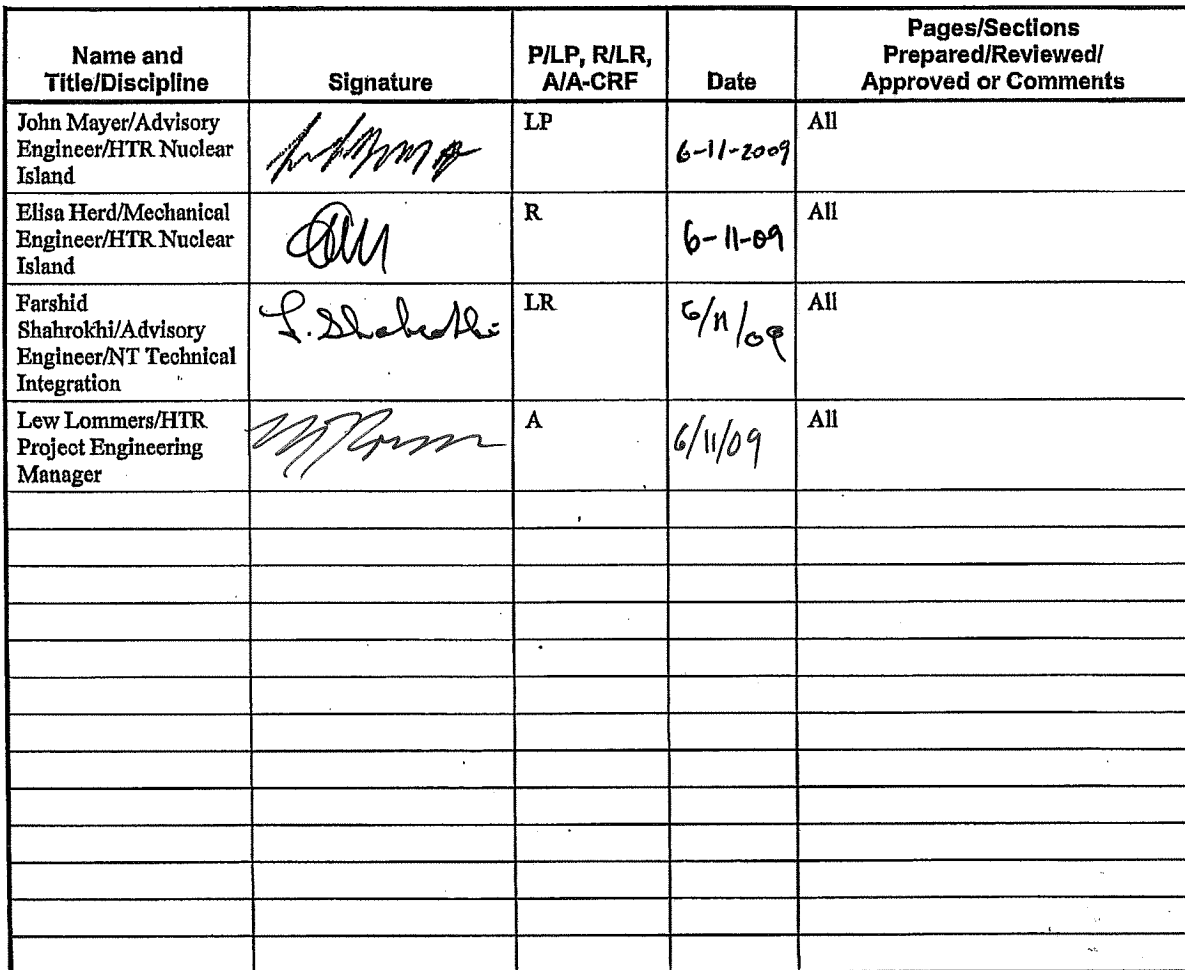 Name and
Title/Discipline
Signature
P/LP, R/LR,
A/A-CRF
Date
Pages/Sections
Prepared/Reviewed/
Approved or Comments
John Mayer/Advisory
Engineer/HTR Nuclear
Island
LP
6-11-2009
All
Elisa Herd/Mechanical
Engineer/HTR Nuclear
Island
R
6-11-09
All
Farshid
Shahrokhi/Advisory
Engineer/NT Technical
Integration
F. Shahrokhi
LR
6/11/09
All
Lew Lommers/HTR
Project Engineering
Manager
A
6/11/09
All